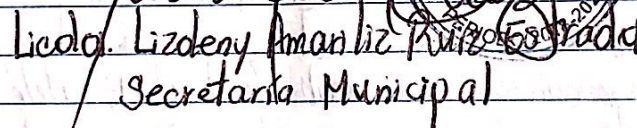 Licda. Lizdeny Amariliz Ruiz
Secretaria Municipal